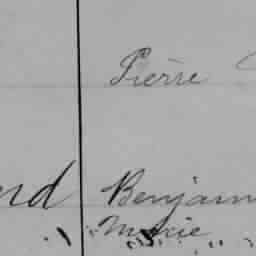 Pierre
nd Benjamin
Marie